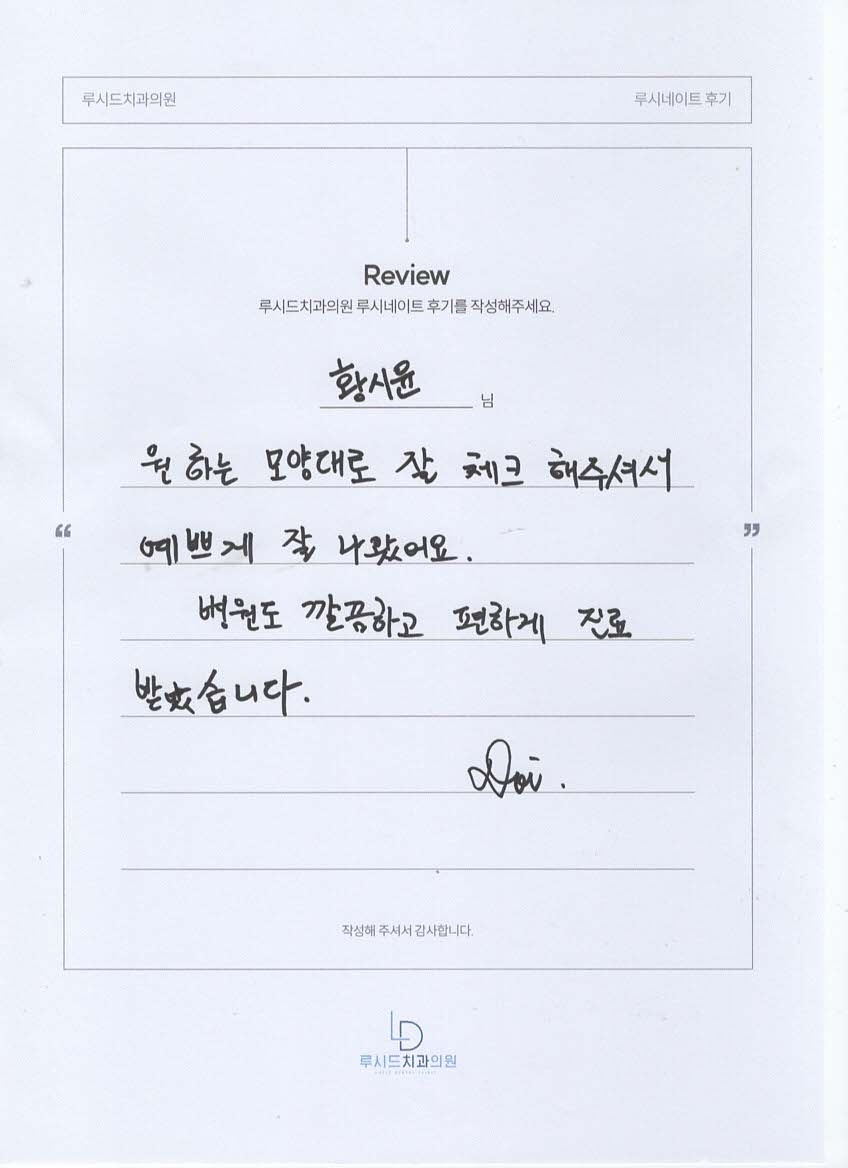 루시드치과의원 루시네이트 후기
Review
루시드치과의원 루시네이트 후기를 작성해주세요.
황시윤 님
원하는 모양대로 잘 체크 해주셔서
예쁘게 잘 나왔어요.
병원도 깔끔하고 편하게 진료
받았습니다.
작성해 주셔서 감사합니다.
LD
루시드치과의원